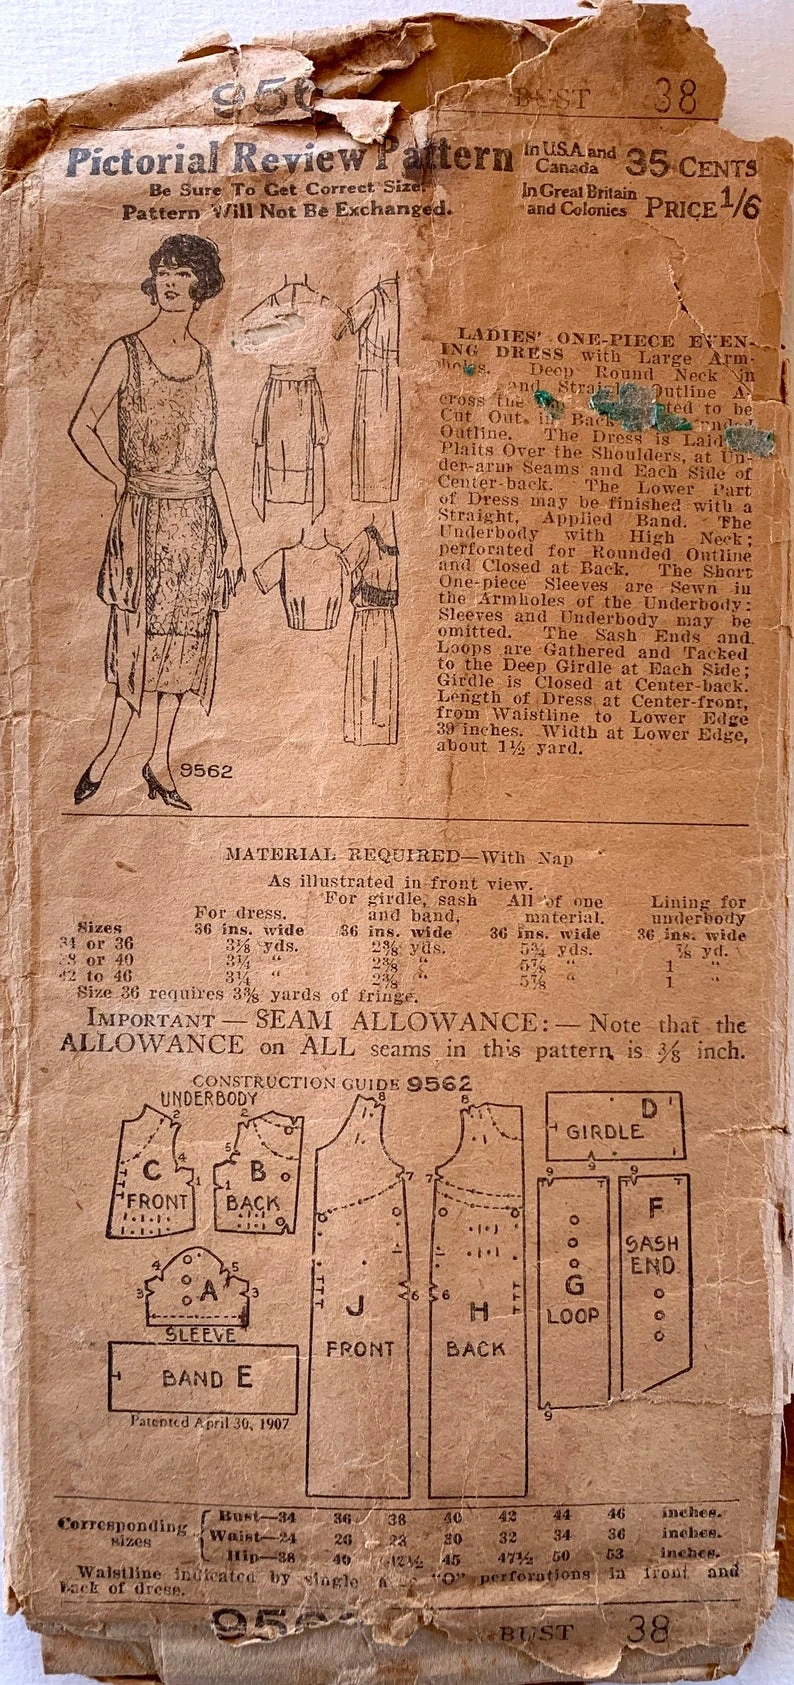 956
BUST 38
Pictorial Review Pattern
In U.S.A. and Canada 35 CENTS
Be Sure To Get Correct Size.
Pattern Will Not Be Exchanged.
In Great Britain and Colonies PRICE 1/6
LADIES' ONE-PIECE EVEN-
ING DRESS with Large Arm-
holes. Deep Round Neck in
and Straight Outline A-
cross the to be
Cut Out in Back
Outline. The Dress is Laid
Plaits Over the Shoulders, at Un-
der-arm Seams and Each Side of
Center-back. The Lower Part
of Dress may be finished with a
Straight, Applied Band. The
Underbody with High Neck;
perforated for Rounded Outline
and Closed at Back. The Short
One-piece Sleeves are Sewn in
the Armholes of the Underbody:
Sleeves and Underbody may be
omitted. The Sash Ends and
Loops are Gathered and Tacked
to the Deep Girdle at Each Side;
Girdle is Closed at Center-back.
Length of Dress at Center-front,
from Waistline to Lower Edge
39 inches. Width at Lower Edge,
about 1½ yard.
9562
MATERIAL REQUIRED—With Nap
As illustrated in front view.
For dress. For girdle, sash and band, All of one material. Lining for underbody
Sizes 36 ins. wide 36 ins. wide 36 ins. wide 36 ins. wide
34 or 36 3⅛ yds. 2⅜ yds. 5¾ yds. ⅞ yd.
38 or 40 3¼ " 2⅜ " 5⅞ " 1 "
42 to 46 3¼ " 2⅜ " 5⅞ " 1 "
Size 36 requires 3⅜ yards of fringe.
IMPORTANT — SEAM ALLOWANCE: — Note that the
ALLOWANCE on ALL seams in this pattern is ⅜ inch.
CONSTRUCTION GUIDE 9562
UNDERBODY
C
FRONT
2
4
1
B
BACK
2
5
1
A
SLEEVE
4
5
3
3
BAND E
Patented April 30, 1907
J
FRONT
8
7
6
H
BACK
8
7
6
D
GIRDLE
9
G
LOOP
9
9
F
SASH
END
9
Corresponding sizes
Bust—34 36 38 40 42 44 46 inches.
Waist—24 26 28 30 32 34 36 inches.
Hip—38 40 42½ 45 47½ 50 53 inches.
Waistline indicated by single "O" perforations in front and
back of dress.
956
BUST 38